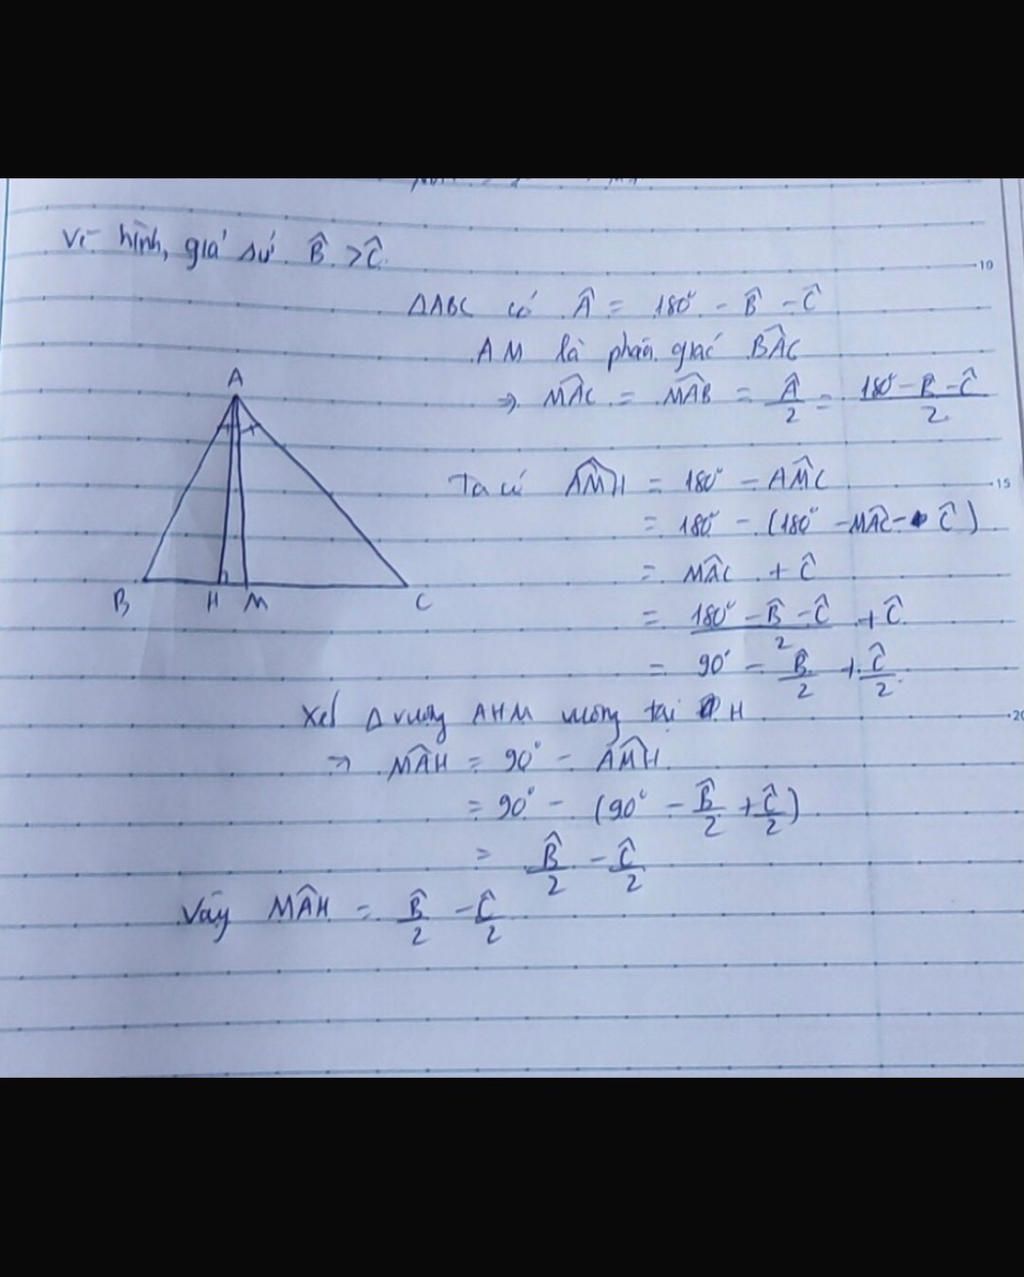 Vẽ hình, giả sử B̂ > Ĉ.
10
ΔABC có Â = 180° - B̂ - Ĉ
AM là phân giác BÂC
A
⇒ MÂC = MÂB = Â/2 = (180° - B̂ - Ĉ)/2
Ta có AM̂H = 180° - AM̂C
15
= 180° - (180° - MÂC - Ĉ)
= MÂC + Ĉ
B H M C
= (180° - B̂ - Ĉ)/2 + Ĉ
= 90° - B̂/2 + Ĉ/2
Xét Δ vuông AHM vuông tại H
20
⇒ MÂH = 90° - AM̂H
= 90° - (90° - B̂/2 + Ĉ/2)
= B̂/2 - Ĉ/2
Vậy MÂH = B̂/2 - Ĉ/2